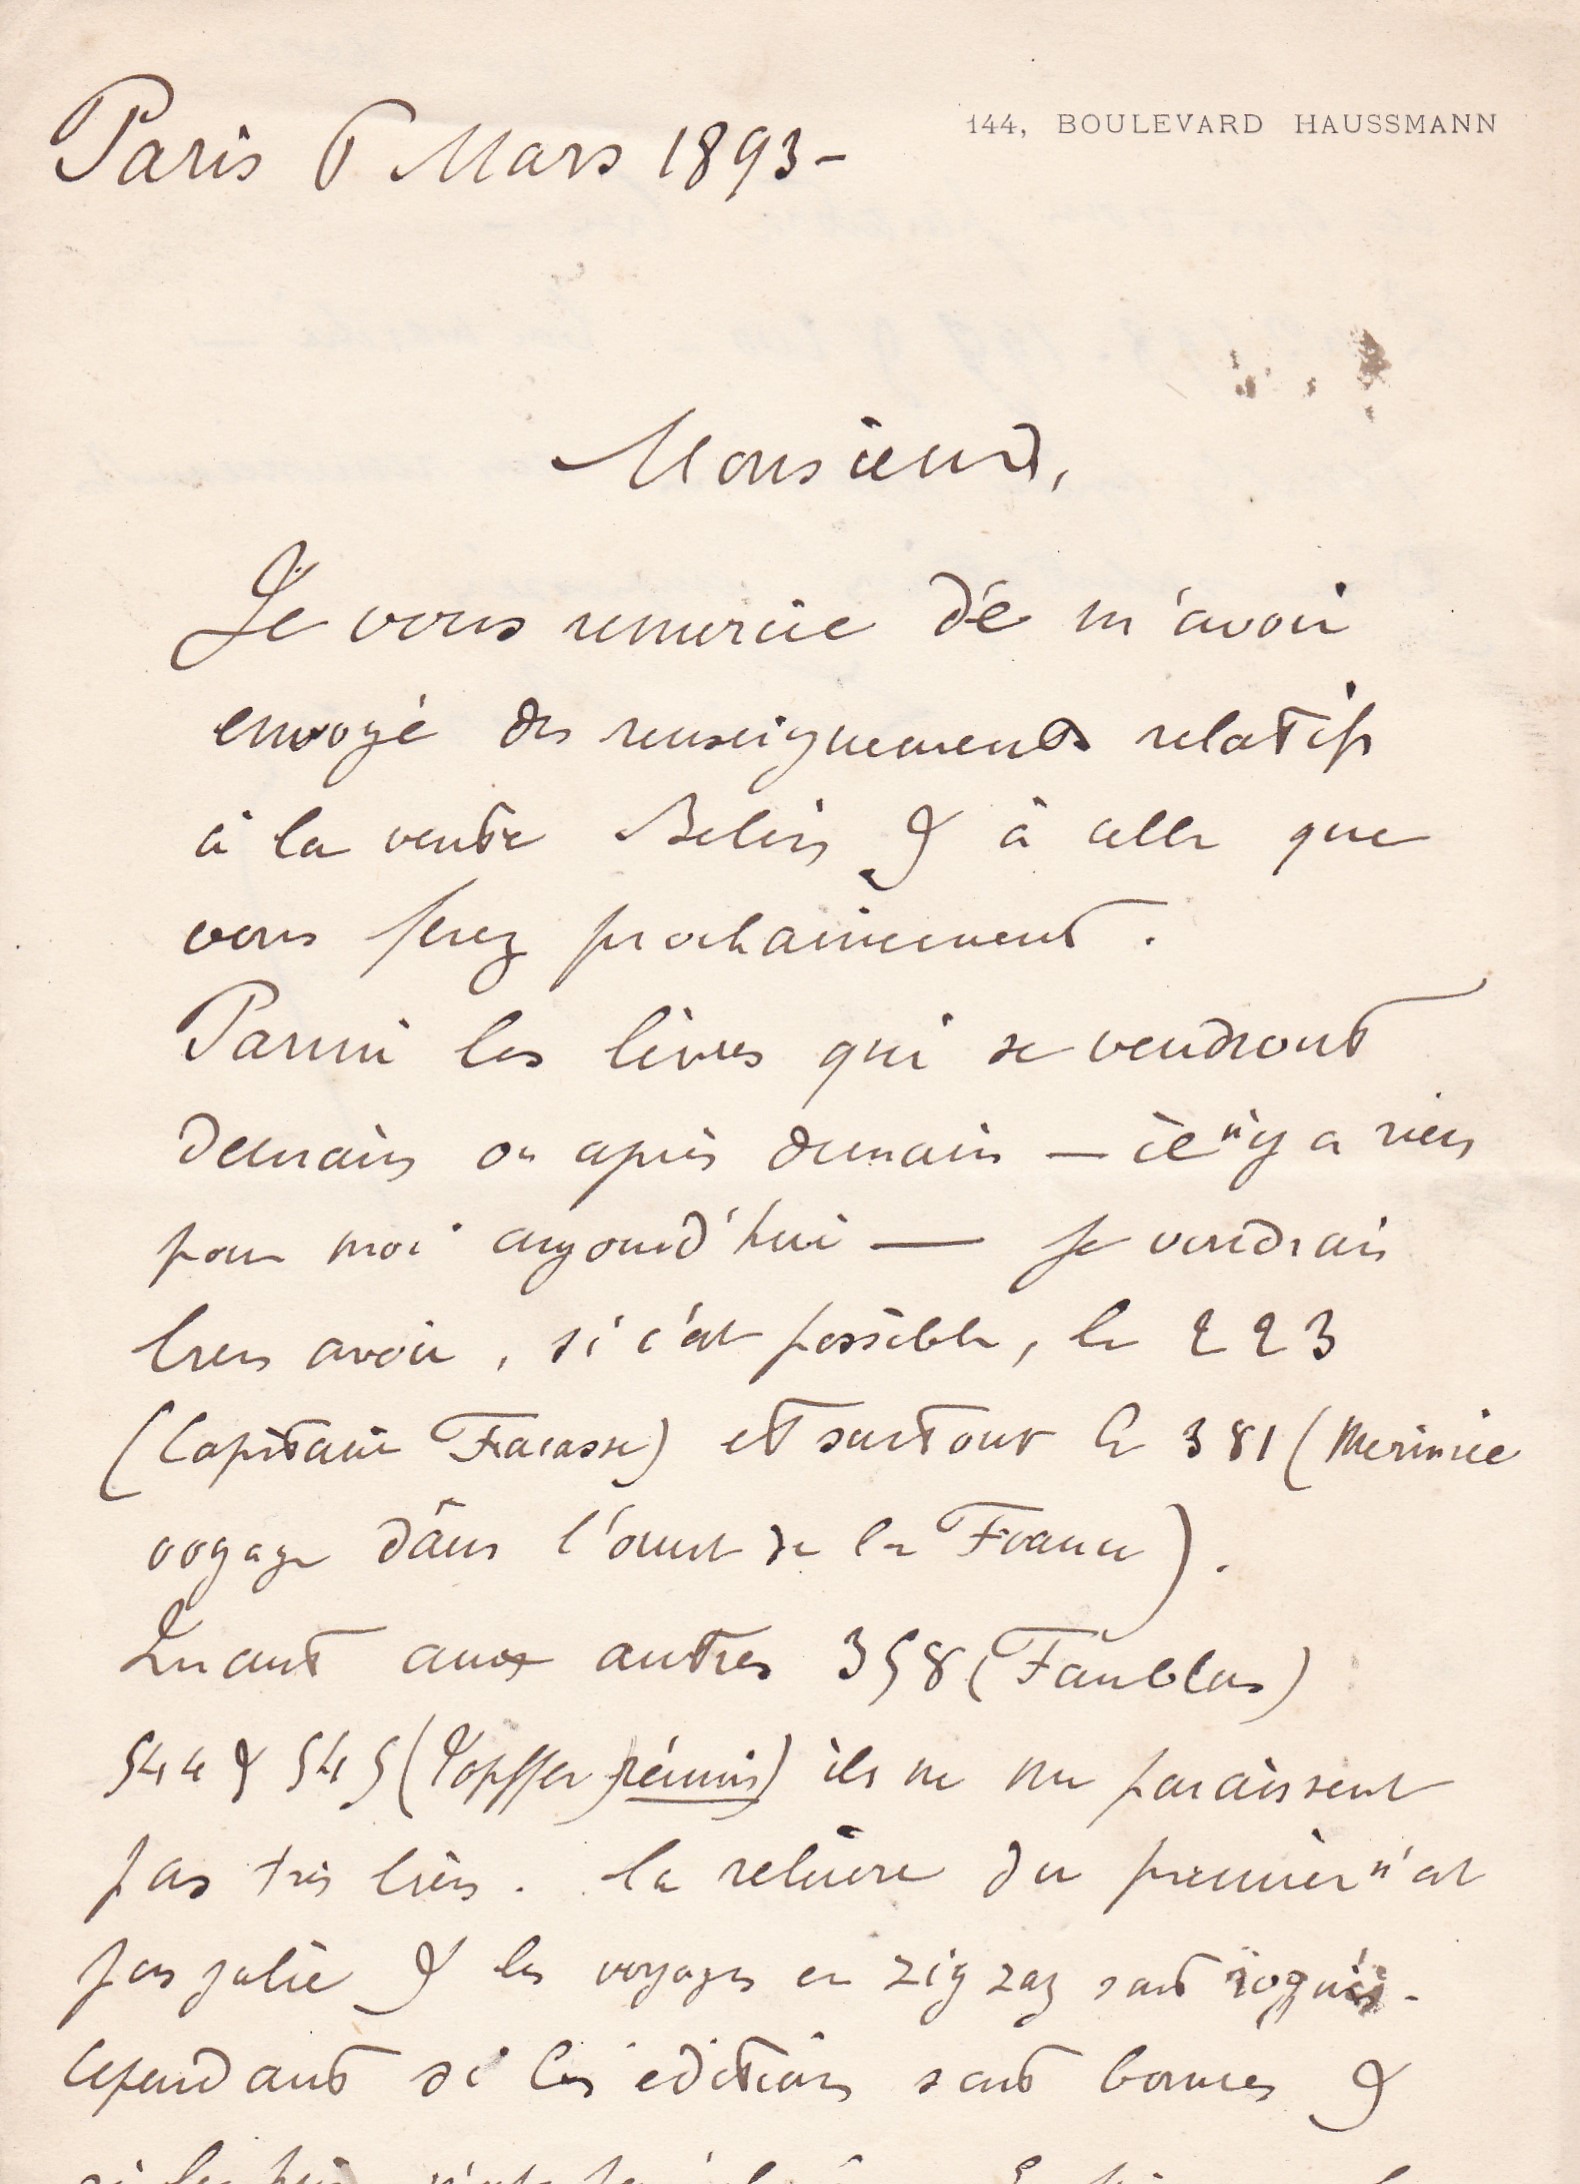 144, BOULEVARD HAUSSMANN
Paris 6 Mars 1893-
Monsieur,
Je vous remercie de m'avoir
envoyé des renseignements relatifs
à la vente Belin & à celle que
vous ferez prochainement.
Parmi les livres qui se vendront
demain ou après demain — il n'y a rien
pour moi aujourd'hui — je voudrais
bien avoir, si c'est possible, le 223
(Capitaine Fracasse) et surtout le 381 (Merimée
voyage dans l'ouest de la France).
Quant aux autres 358 (Faublas)
544 & 545 (Topffer réunis) ils ne me paraissent
pas très bien. la reliure du premier n'est
pas jolie & les voyages en zig zag sont rognés.
Cependant si les editions sont bonnes &
si les prix